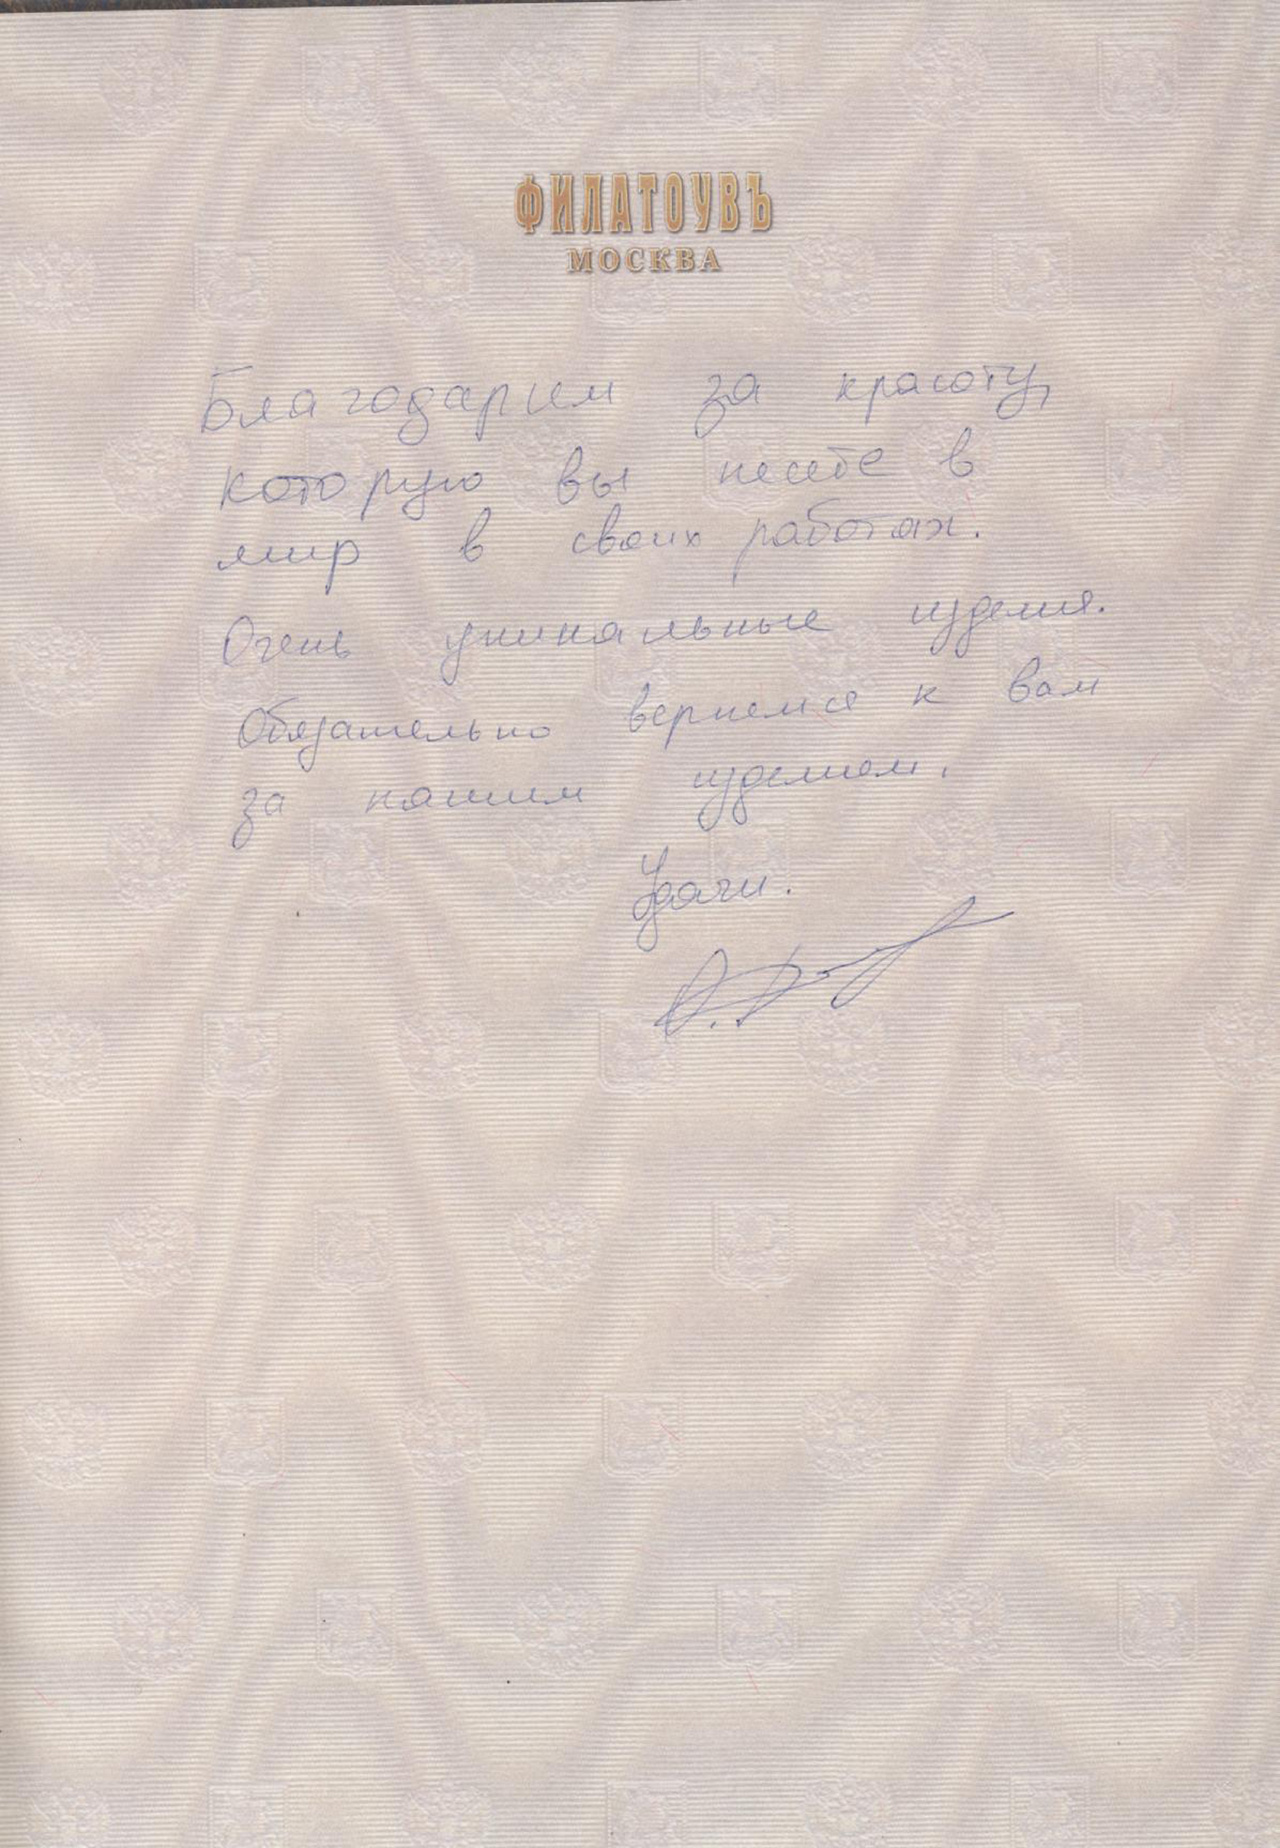 ФИЛАТОУВЪ
МОСКВА
Благодарим за красоту,
которую вы несёте в
мир в своих работах.
Очень уникальные изделия.
Обязательно вернемся к вам
за нашим изделием.
Удачи.